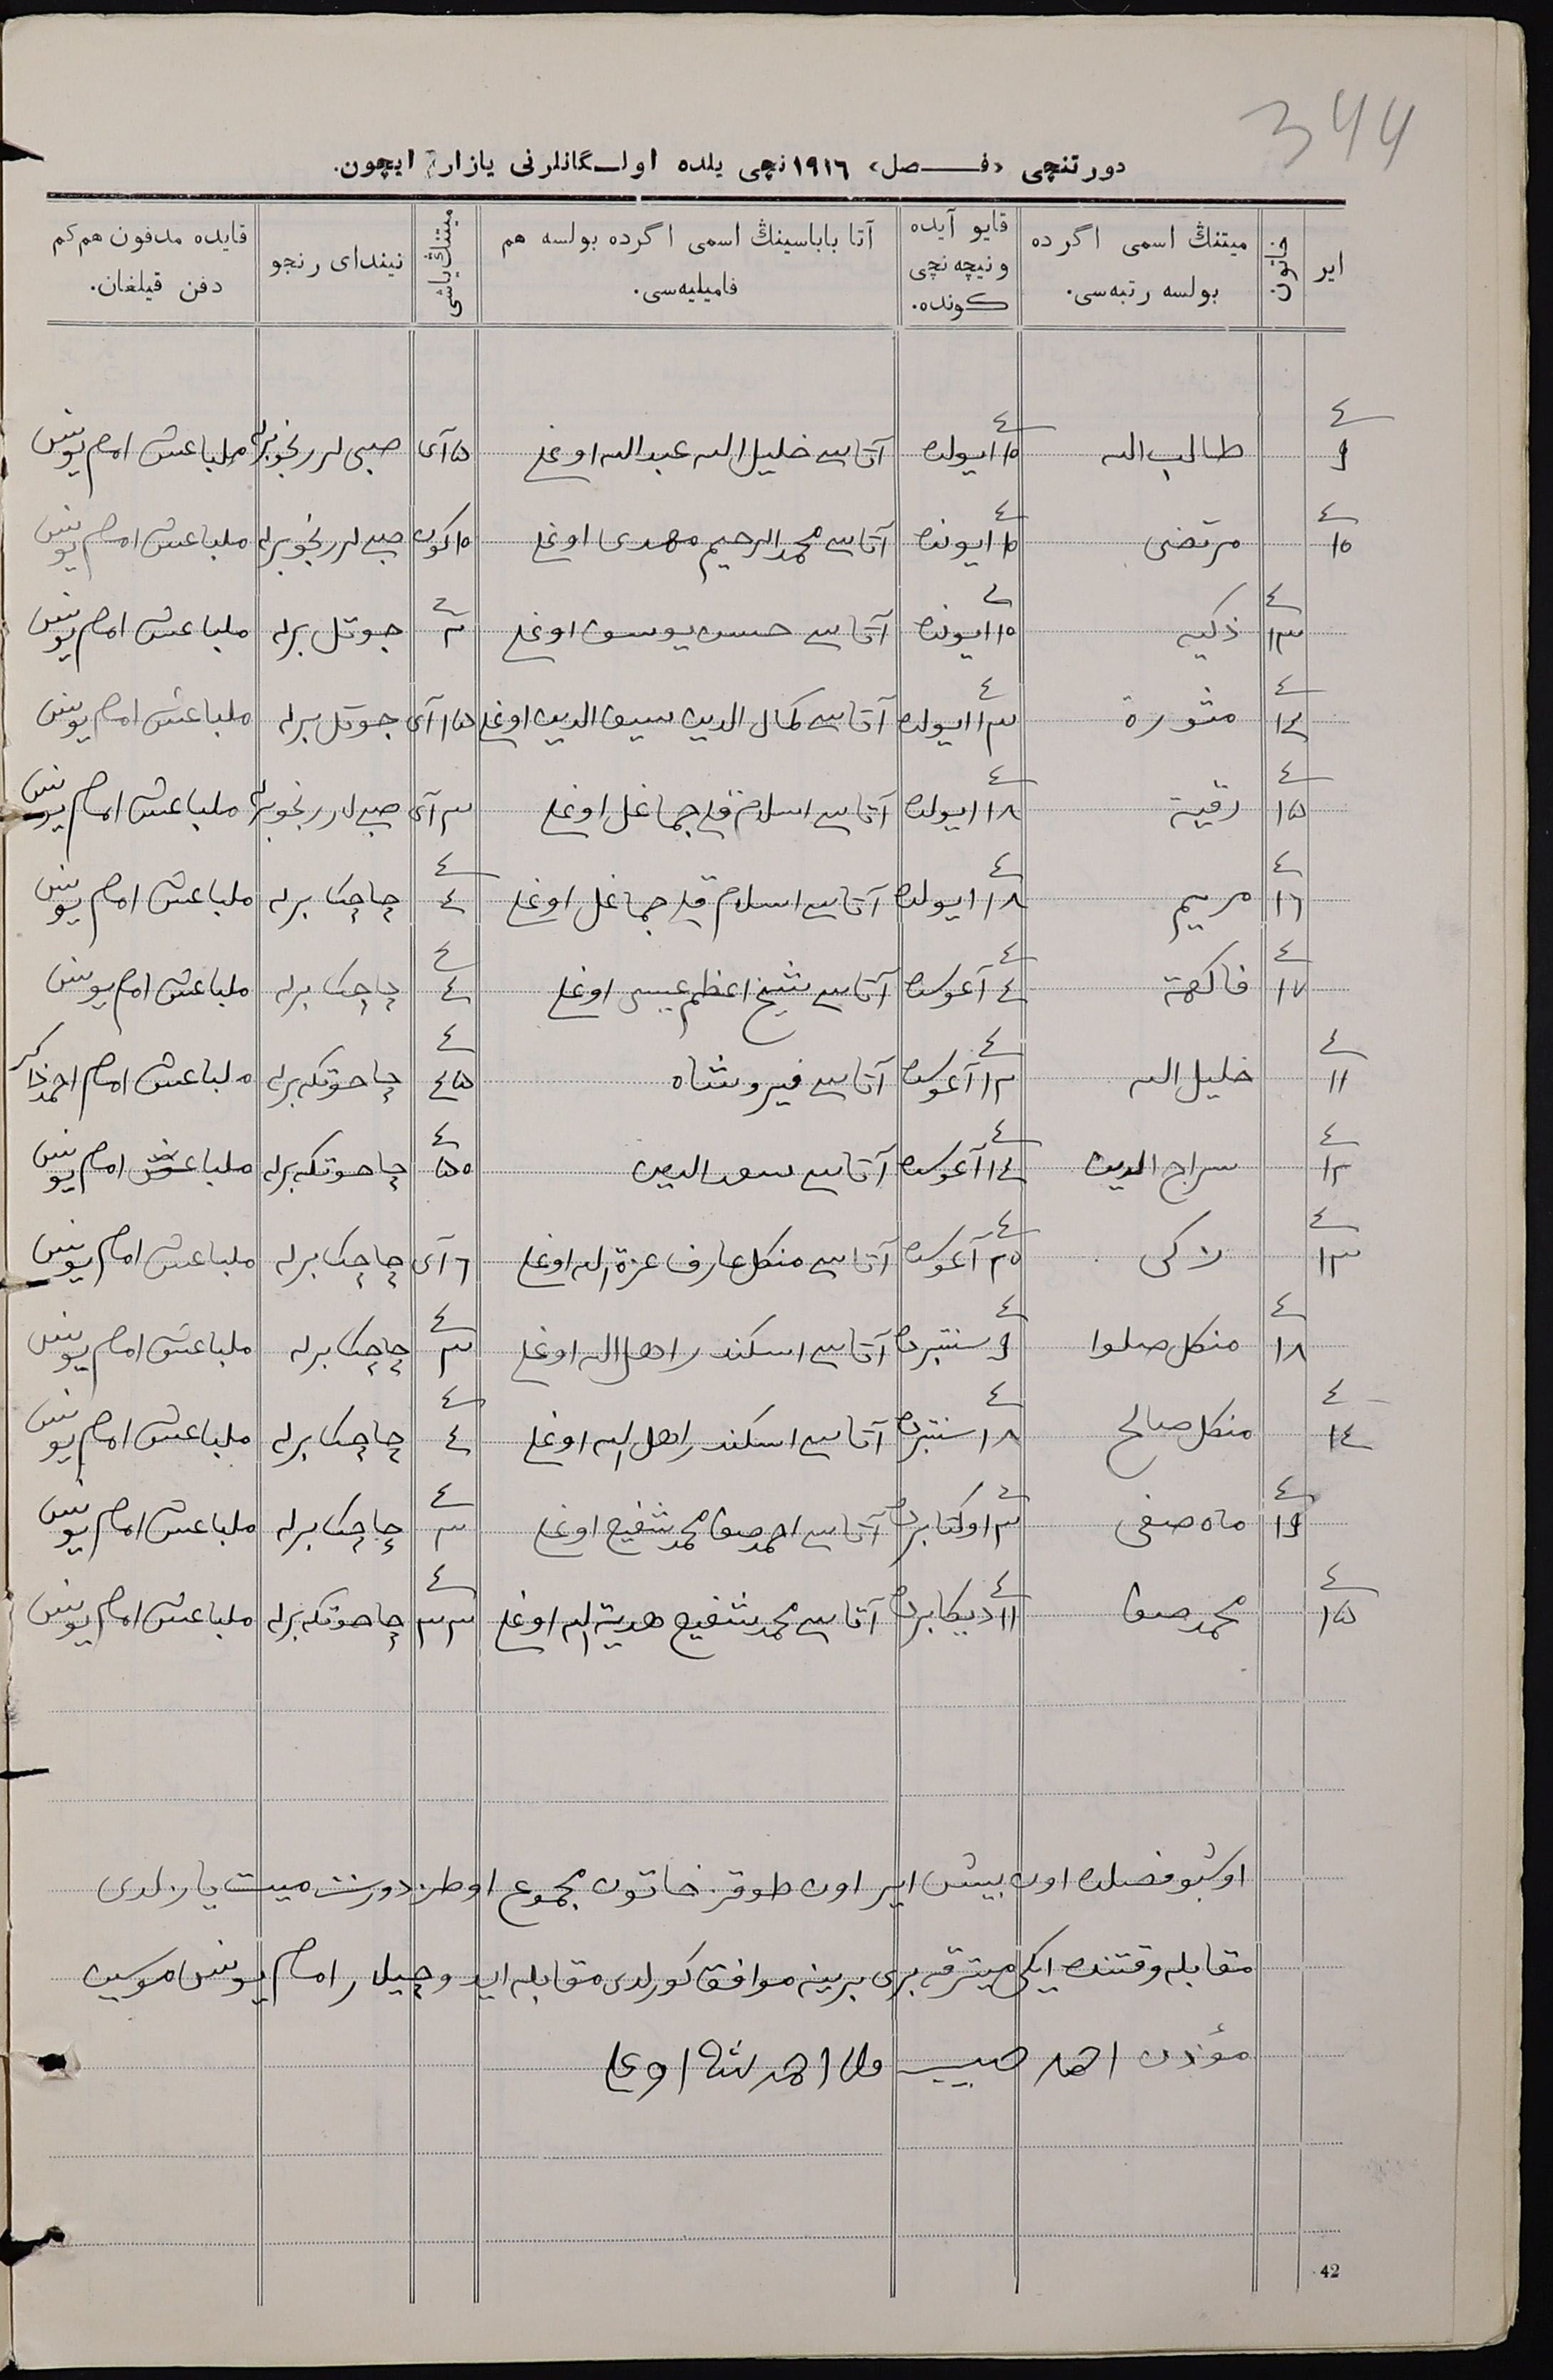 344
دورتنچی «فـصل» ١٩١٦ نچی یلده اولـگانلرنی یازار ایچون.
ایر | خاتون | میتنڭ اسمی اگرده بولسه رتبه‌سی. | قایو آیده ونیچه نچی کونده. | آتا باباسینڭ اسمی اگرده بولسه هم فامیلیه‌سی. | میتنڭ یاشی | نیندای رنجو | قایده مدفون هم کم دفن قیلغان.
٩ طالب الله ١٥ ایولده آتاسی خلیل الله عبدالله اوغلی ٥ آی صبی لر رنجو برله ملباعش امام یونس
١٠ مرتضی ١٥ ایونده آتاسی محمد الرحیم مهدی اوغلی ١٥ کون صبی لر رنجو برله ملباعش امام یونس
١٣ ذکیه ١٥ ایونده آتاسی حسن یوسف اوغلی ٢ جوتل برله ملباعش امام یونس
١٤ مشوره ١٣ ایولده آتاسی کمال الدین سیف الدین اوغلی ١٥ آی جوتل برله ملباعش امام یونس
١٥ رقیة ١٨ ایولده آتاسی اسلام قلی جماغل اوغلی ٣ آی صبی لر رنجو برله ملباعش امام یونس
١٦ مریم ١٨ ایولده آتاسی اسلام قلی جماغل اوغلی ٤ چاچکا برله ملباعش امام یونس
١٧ فاکهة ٤ آغوسده آتاسی شیخ اعظم عیسی اوغلی ٤ چاچکا برله ملباعش امام یونس
١١ خلیل الله ١٢ آغوسده آتاسی فیروشاه ٤٥ چاحوتکه برله ملباعش امام احمد ذاکر
١٢ سراج الدین ١٤ آغوسده آتاسی سعد الدین ٥٥ چاحوتکه برله ملباعش امام یونس
١٣ لاکی ٢٥ آغوسده آتاسی منکل عارف عزة الله اوغلی ٦ آی چاچکا برله ملباعش امام یونس
١٨ منکل صلوا ٩ سنتبرده آتاسی اسکندر اهل الله اوغلی ٣ چاچکا برله ملباعش امام یونس
١٤ منکل صالح ١٨ سنتبرده آتاسی اسکندر اهل الله اوغلی ٤ چاچکا برله ملباعش امام یونس
١٩ ماه صفی ٣ اوکتابرده آتاسی احمد صفا محمد شفیع اوغلی ٣ چاچکا برله ملباعش امام یونس
١٥ محمد صفا ١١ دیکابرده آتاسی محمد شفیع هدیة الله اوغلی ٣٣ چاحوتکه برله ملباعش امام یونس
اوشبو فصلده اون بیش ایر اون طوقز خاتون مجموع اوطز دورت میت یازلدی
مقابله وقتنده ایکی میترقه بری برینه موافق کورلدی مقابله ایدوچیلار امام یونس موسین
مؤذن احمد حبیب ملا احمد شاه اوغلی
42